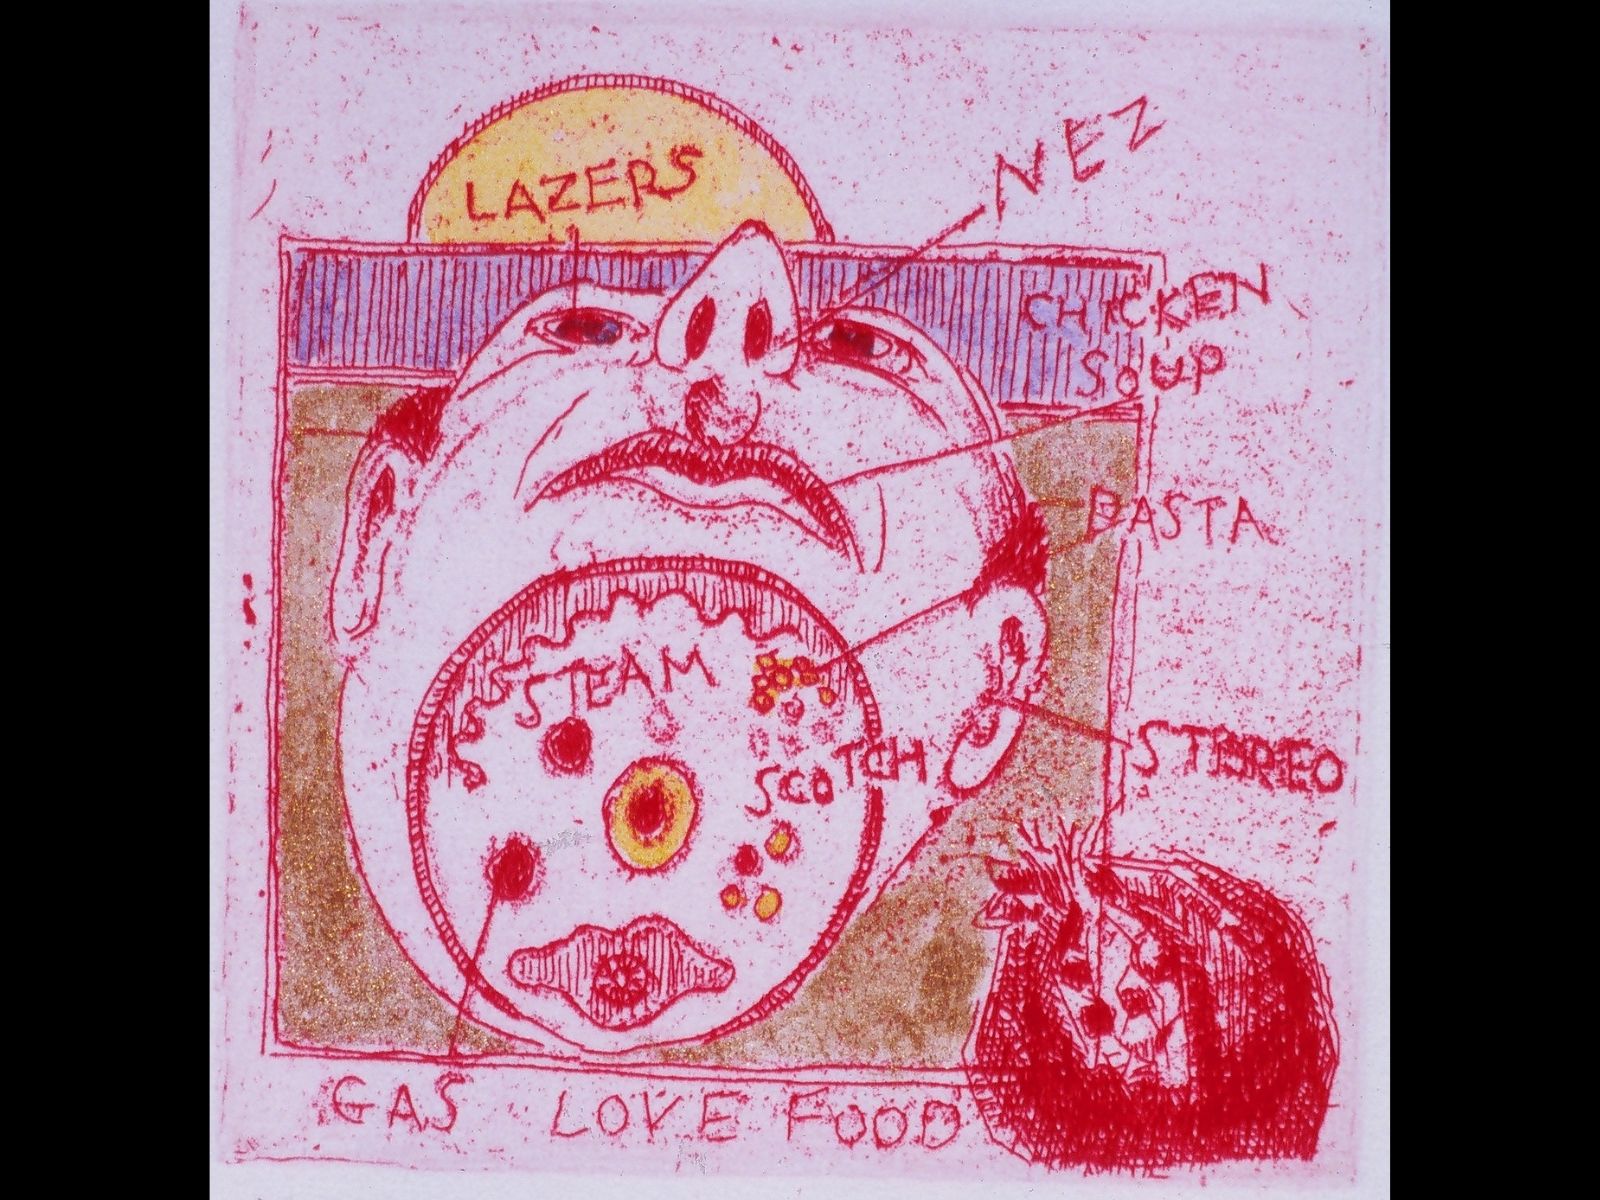 LAZERS
NEZ
CHICKEN
SOUP
BASTA
STEAM
SCOTCH
STEREO
GAS LOVE FOOD